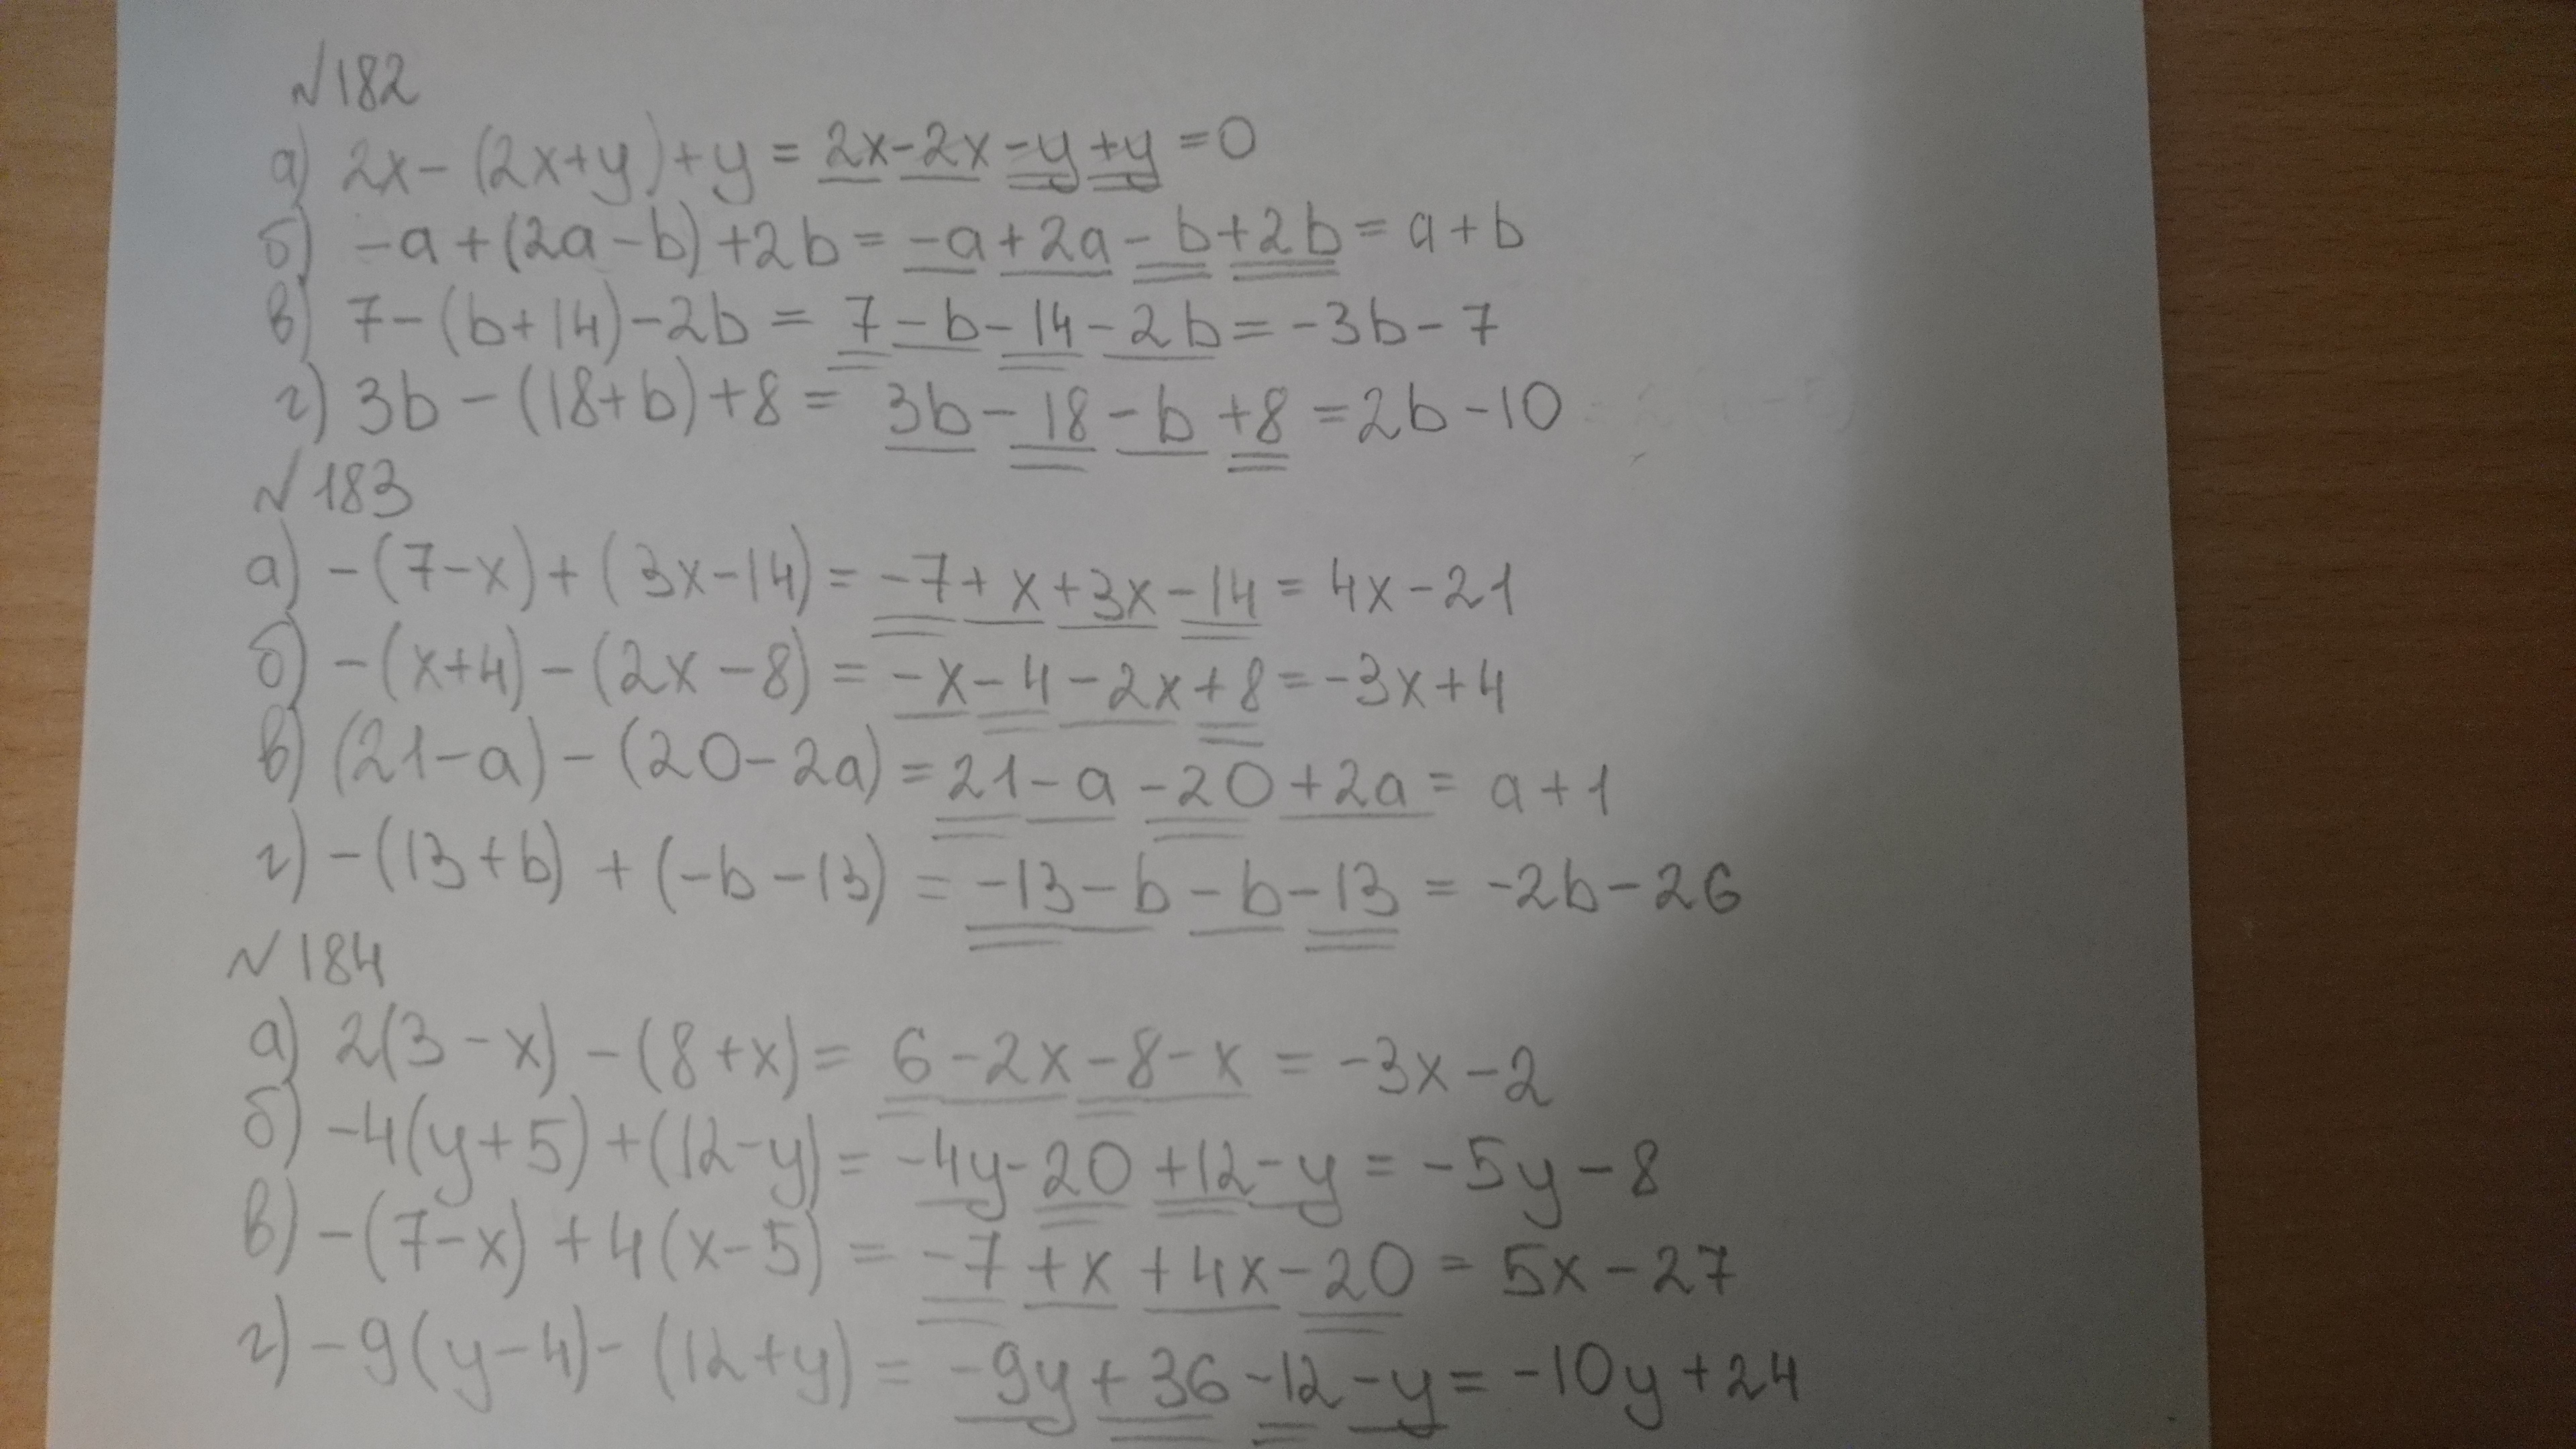 №182
а) 2x-(2x+y)+y=2x-2x-y+y=0
б) -a+(2a-b)+2b=-a+2a-b+2b=a+b
в) 7-(b+14)-2b=7-b-14-2b=-3b-7
г) 3b-(18+b)+8=3b-18-b+8=2b-10
№183
а) -(7-x)+(3x-14)=-7+x+3x-14=4x-21
б) -(x+4)-(2x-8)=-x-4-2x+8=-3x+4
в) (21-a)-(20-2a)=21-a-20+2a=a+1
г) -(13+b)+(-b-13)=-13-b-b-13=-2b-26
№184
а) 2(3-x)-(8+x)=6-2x-8-x=-3x-2
б) -4(y+5)+(12-y)=-4y-20+12-y=-5y-8
в) -(7-x)+4(x-5)=-7+x+4x-20=5x-27
г) -9(y-4)-(12+y)=-9y+36-12-y=-10y+24